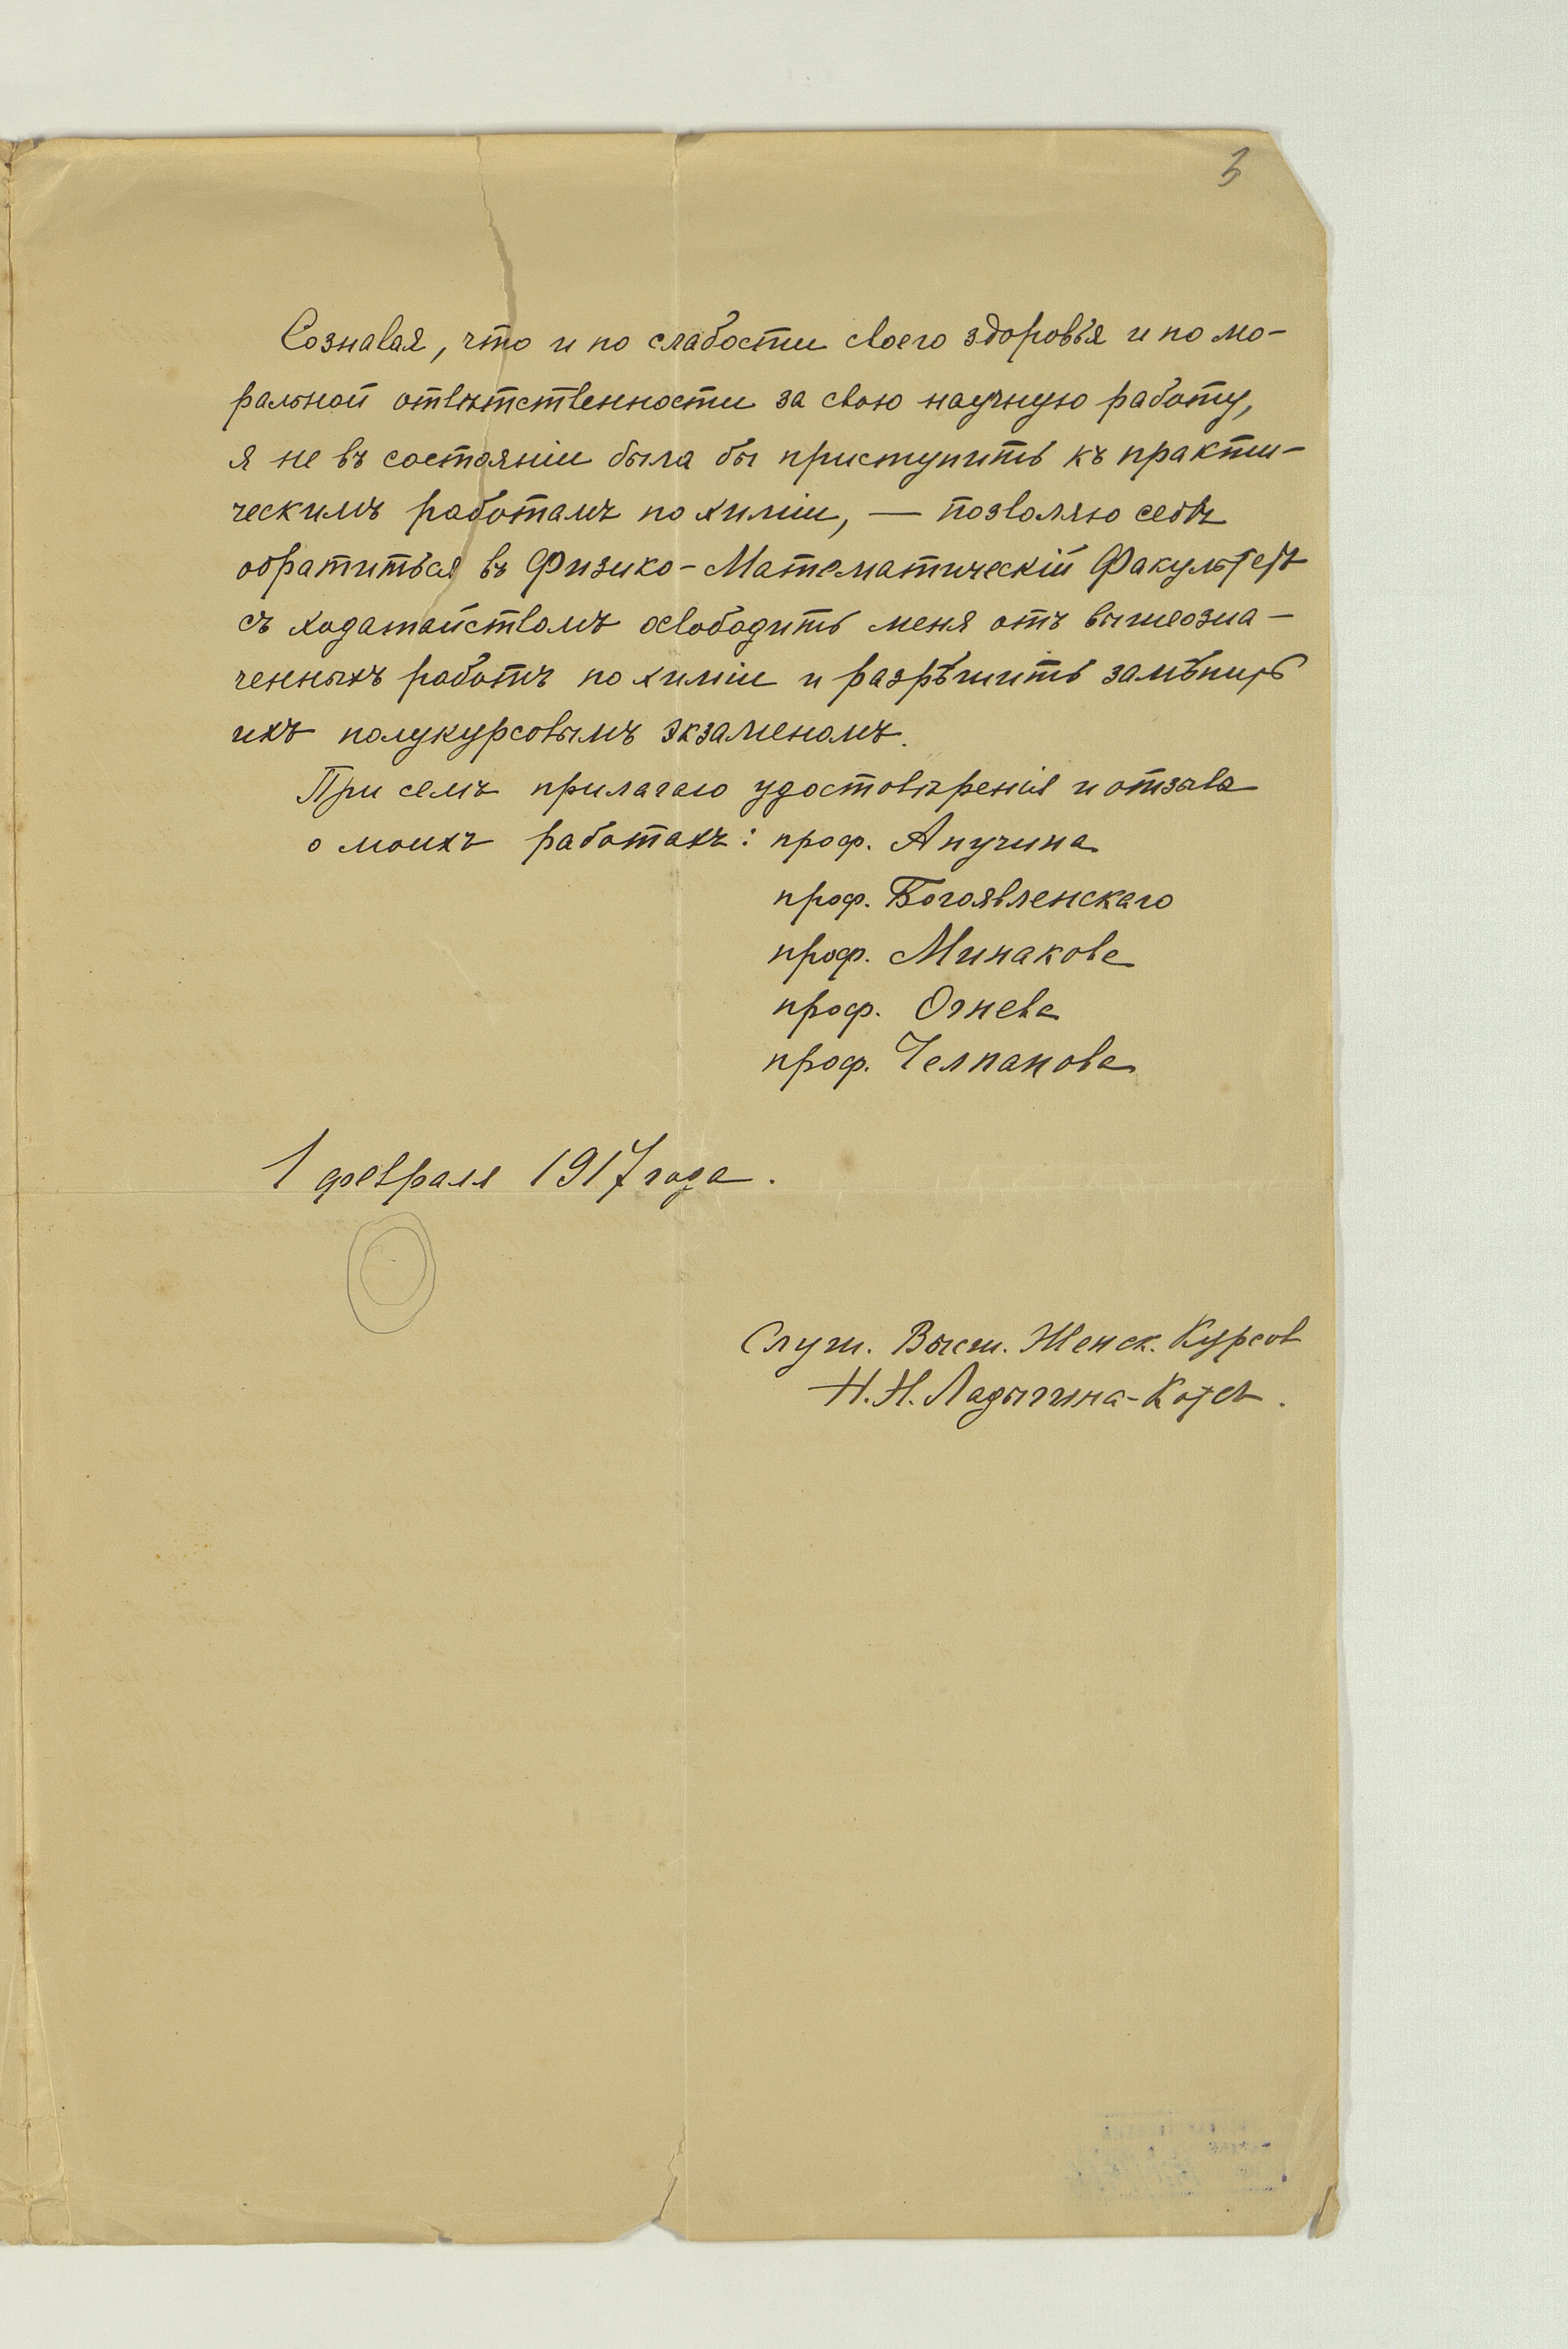 3
Сознавая, что и по слабости своего здоровья и по мо-
ральной отвѣтственности за свою научную работу,
я не въ состояніи была бы приступить къ практи-
ческимъ работамъ по химіи, — позволяю себѣ
обратиться въ Физико-Математическій Факультетъ
съ ходатайствомъ освободить меня отъ вышеозна-
ченныхъ работъ по химіи и разрѣшить замѣнить
ихъ полукурсовымъ экзаменомъ.
При семъ прилагаю удостовѣренія и отзывы
о моихъ работахъ: проф. Анучина
проф. Богоявленскаго
проф. Минакова
проф. Огнева
проф. Челпанова
1 февраля 1917 года.
Слуш. Высш. Женск. Курсов
Н. Н. Ладыгина-Котсъ.